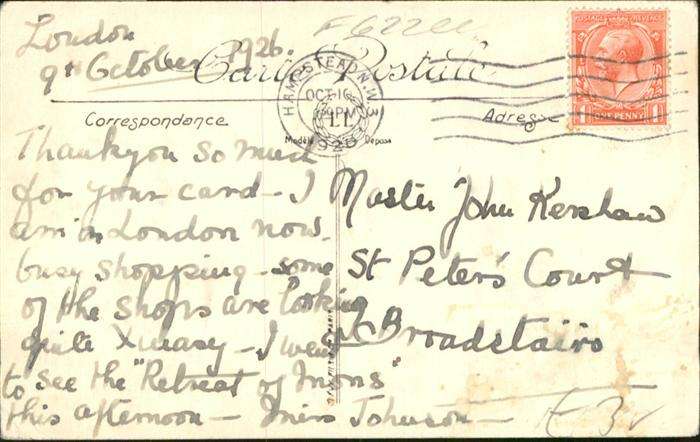 London
9th October 1926.
Carte Postale
HAMPSTEAD N.W.3
OCT 10
PM
1926
POSTAGE REVENUE
1 1
ONE PENNY
Correspondance
Adresse
Modèle Déposé
Thank you so much
for your card – I
am in London now.
busy shopping – some
of the shops are looking
quite Xmasy – I went
to see the "Retreat of Mons"
this afternoon – Miss Johnson –
Master John Kershaw
St Peter's Court
Broadstairs